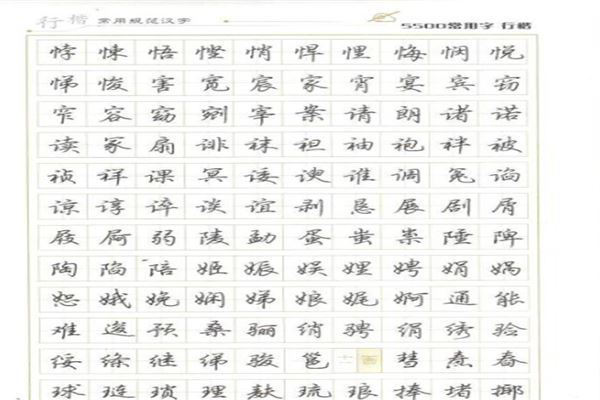 行楷 常用规范汉字
5500常用字 行楷
悖悚悟悭悄悍悝悔悯悦
悌悛害宽宸家宵宴宾窍
窄容窈剜宰案请朗诸诺
读冢扇诽袜袒袖袍袢被
祯祥课冥诿谀谁调冤谄
谅谆谇谈谊剥恳展剧屑
屐屙弱陵勐蛋蚩祟陲陴
陶陷陪姬娠娱娌娉娟娲
恕娥娩娴娣娘娓婀通能
难逡预桑骊绡骋绢绣验
绥绦继绨骏邕十一画彗焘舂
球琏琐理麸琉琅捧堵揶